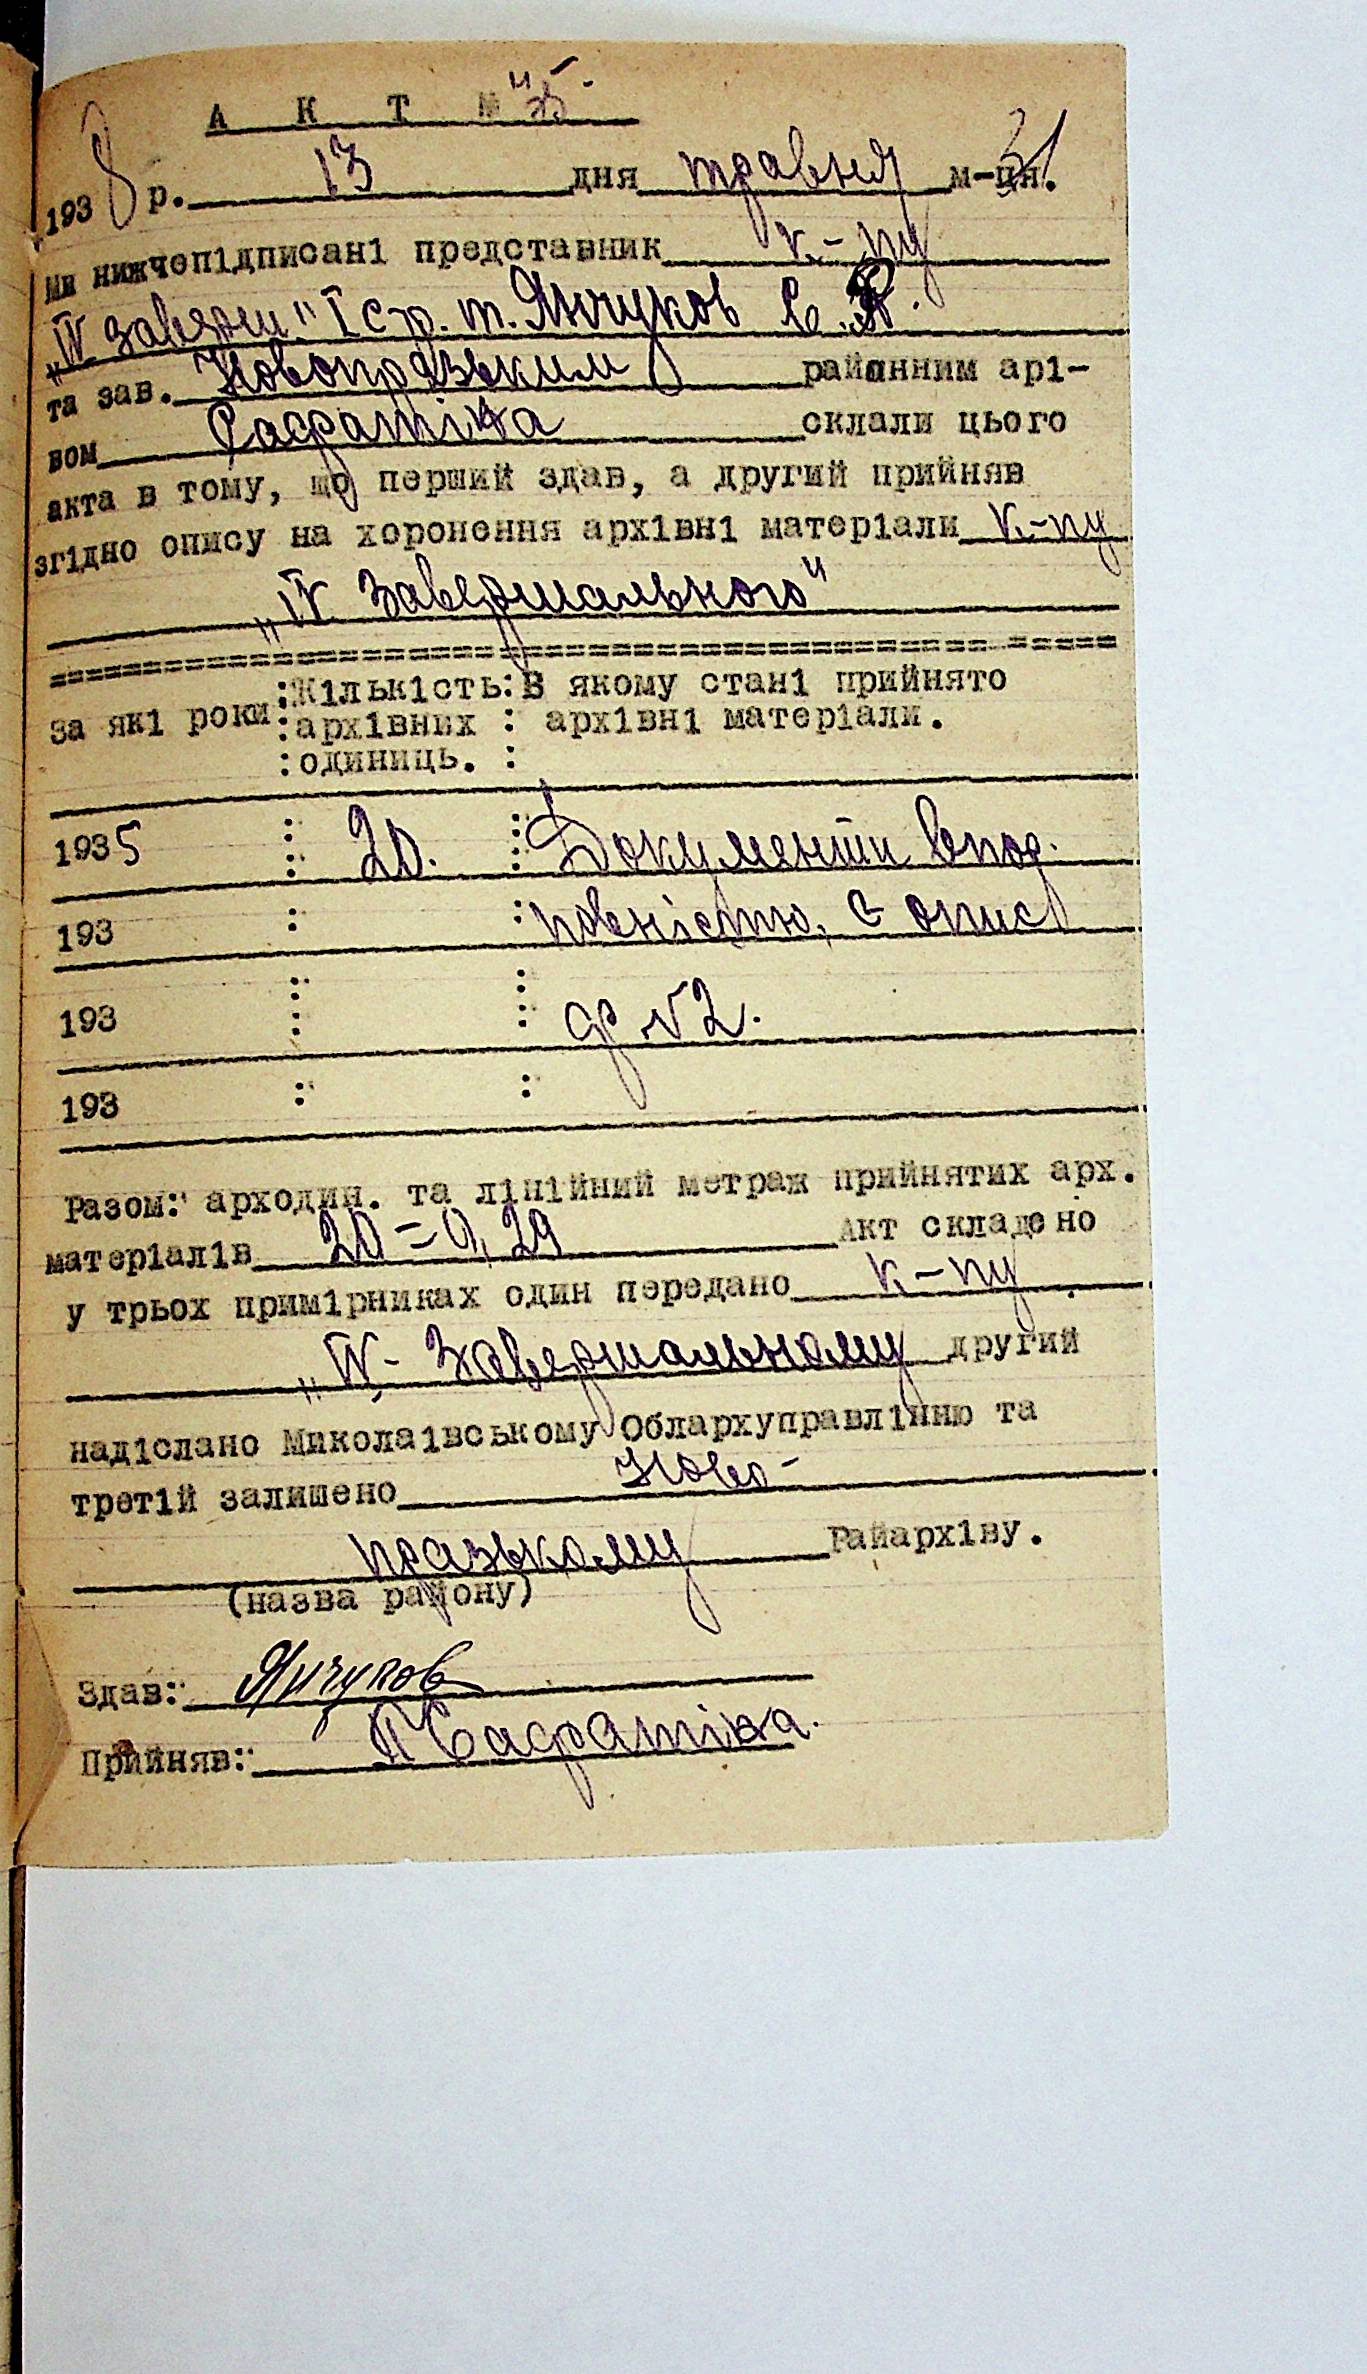 А К Т №
1938 р. 13 дня травня м-ця. 31
Ми нижчепідписані представник к-пу
„IV заверш." Істр. т. Янчуков С.
та зав. Новопразьким районним арі-
вом Сафатіка склали цього
акта в тому, що перший здав, а другий прийняв
згідно опису на хоронення архівні матеріали к-пу
„IV Завершального"
За які роки :Кількість: В якому стані прийнято
:архівних : архівні матеріали.
:одиниць. :
1935 : 20. : Документи впор.
193 : : повністю, є опис
193 : : ф. №2.
193 : :
Разом: арходин. та лінійний метраж прийнятих арх.
матеріалів 20 = 0,29 Акт складено
у трьох примірниках один передано к-пу
„IV- Завершальному другий
надіслано Миколаівському Облархуправлінню та
третій залишено Ново-
празькому Райархіву.
(назва району)
Здав: Янчуков
Прийняв: